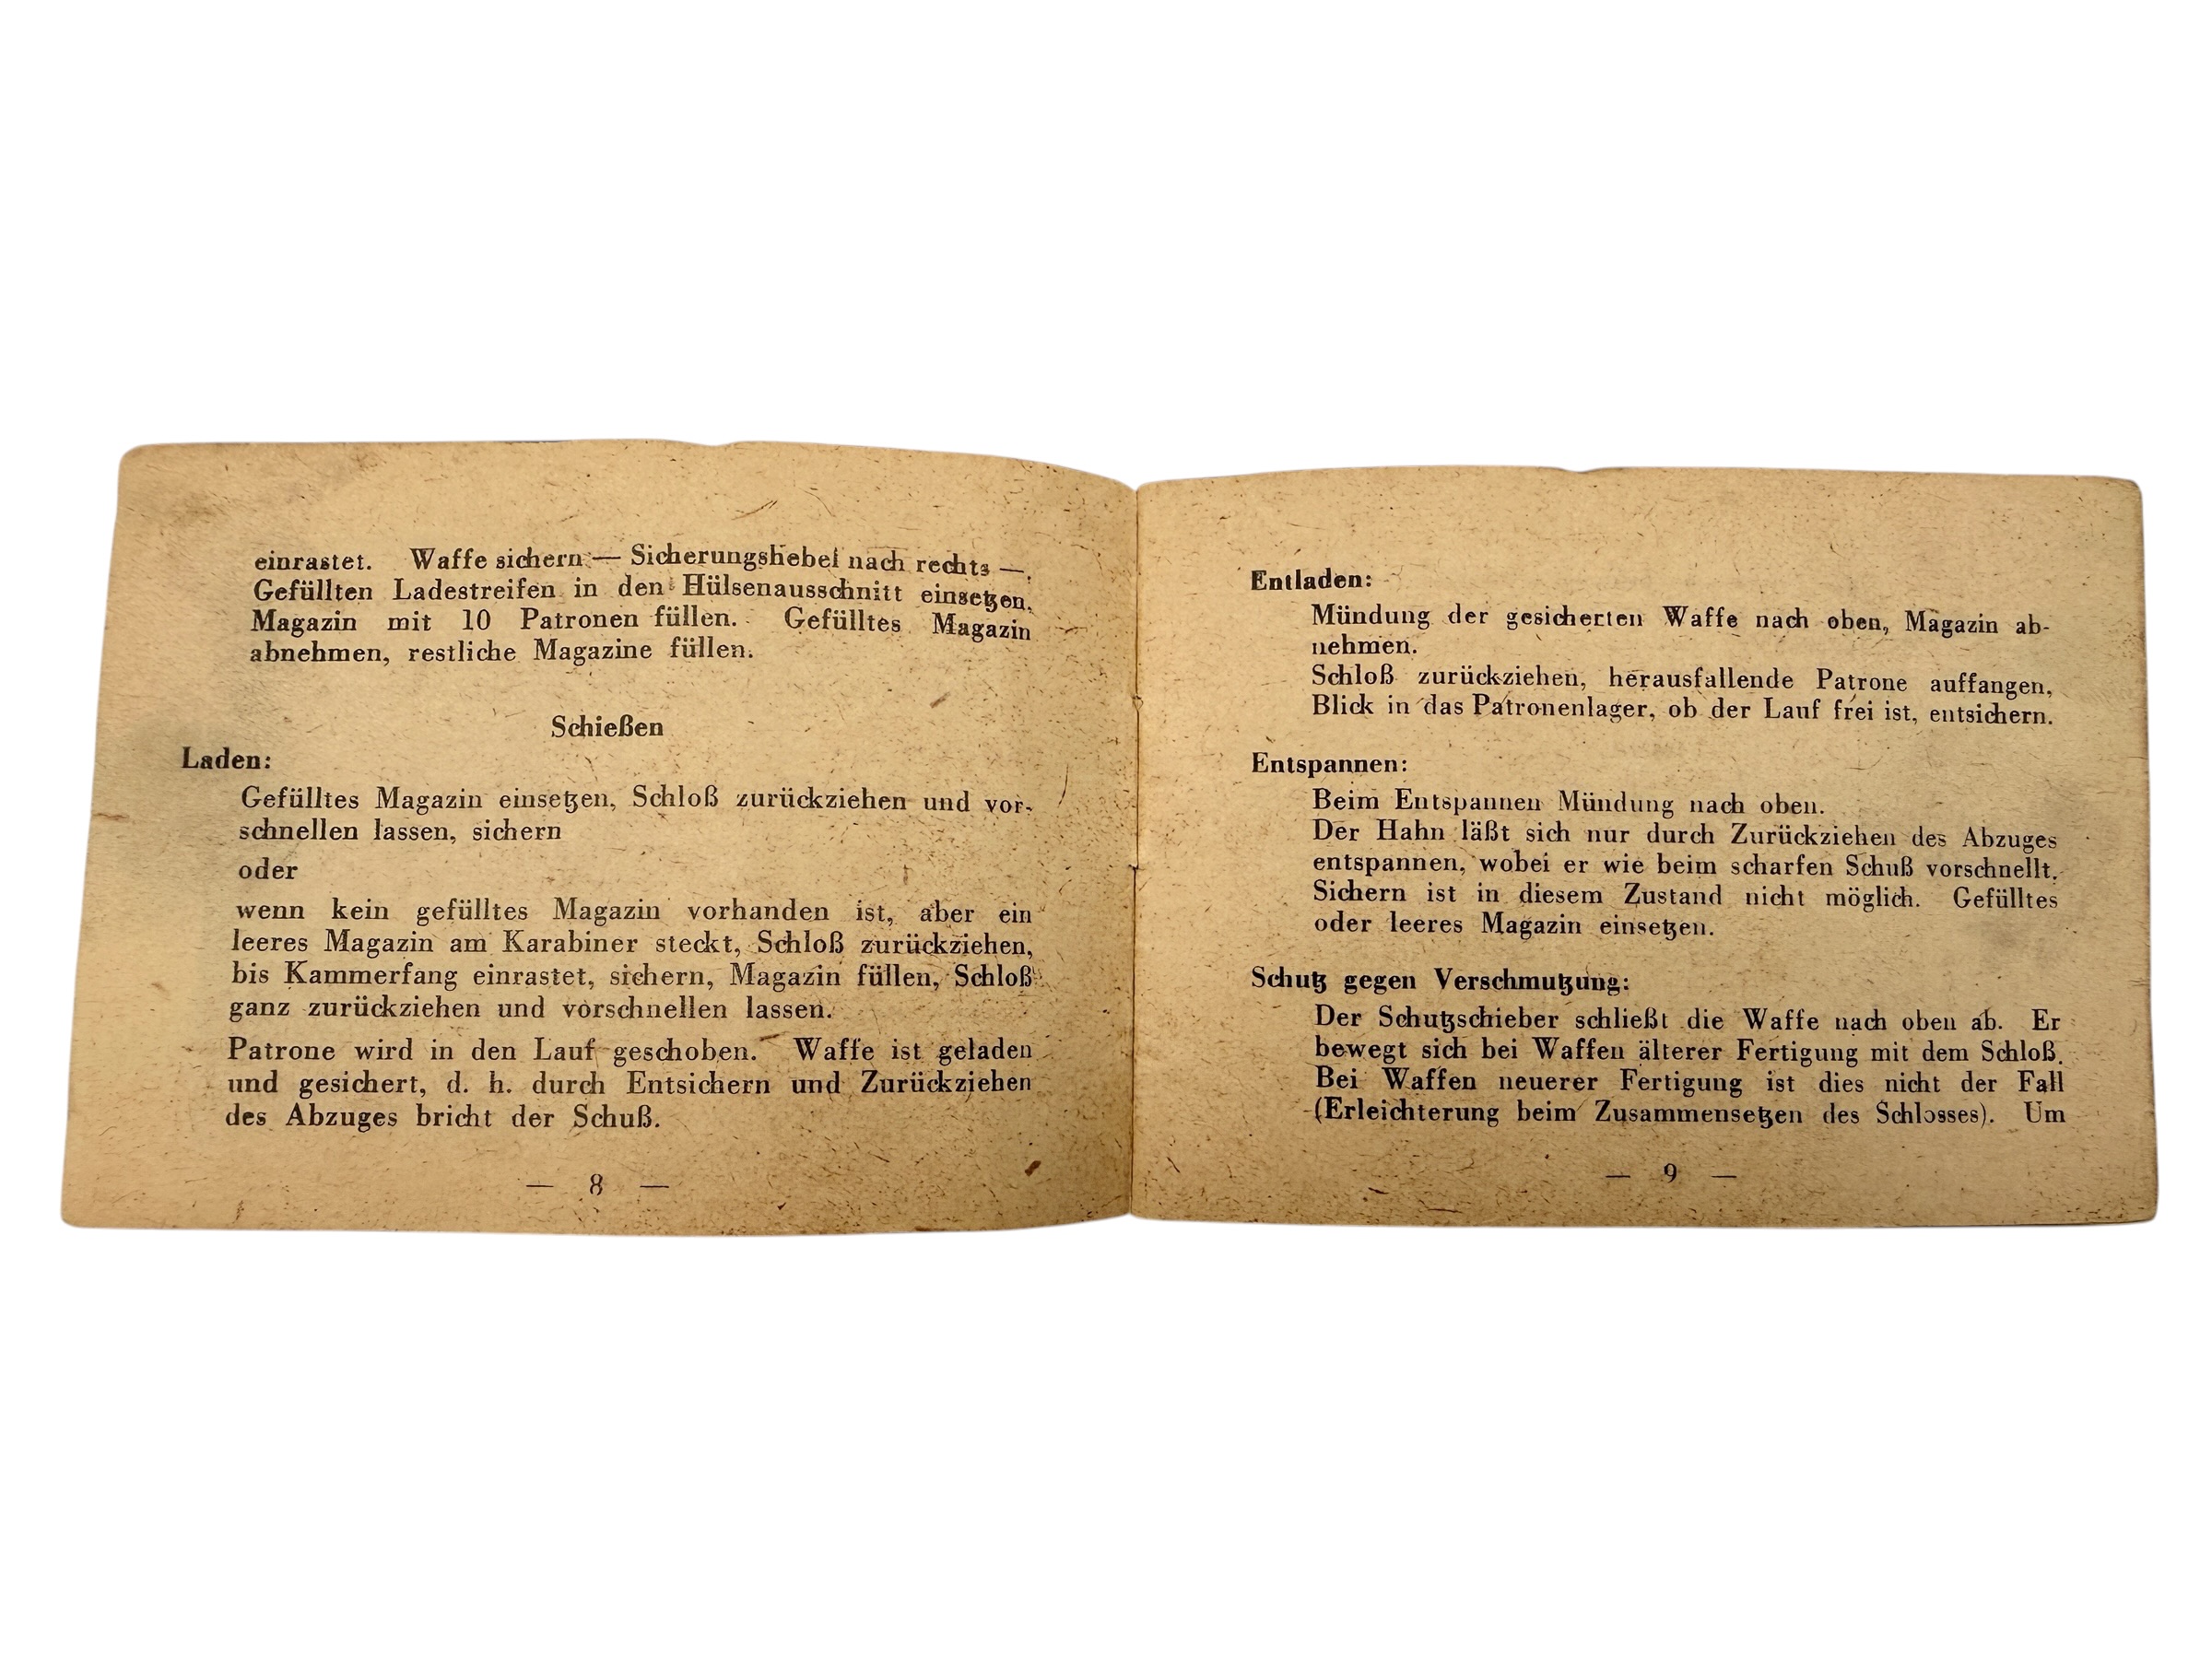 einrastet. Waffe sichern — Sicherungshebel nach rechts —.
Gefüllten Ladestreifen in den Hülsenausschnitt einsetzen.
Magazin mit 10 Patronen füllen. Gefülltes Magazin
abnehmen, restliche Magazine füllen.
Schießen
Laden:
Gefülltes Magazin einsetzen, Schloß zurückziehen und vor-
schnellen lassen, sichern
oder
wenn kein gefülltes Magazin vorhanden ist, aber ein
leeres Magazin am Karabiner steckt, Schloß zurückziehen,
bis Kammerfang einrastet, sichern, Magazin füllen, Schloß
ganz zurückziehen und vorschnellen lassen.
Patrone wird in den Lauf geschoben. Waffe ist geladen
und gesichert, d. h. durch Entsichern und Zurückziehen
des Abzuges bricht der Schuß.
— 8 —
Entladen:
Mündung der gesicherten Waffe nach oben, Magazin ab-
nehmen.
Schloß zurückziehen, herausfallende Patrone auffangen,
Blick in das Patronenlager, ob der Lauf frei ist, entsichern.
Entspannen:
Beim Entspannen Mündung nach oben.
Der Hahn läßt sich nur durch Zurückziehen des Abzuges
entspannen, wobei er wie beim scharfen Schuß vorschnellt.
Sichern ist in diesem Zustand nicht möglich. Gefülltes
oder leeres Magazin einsetzen.
Schutz gegen Verschmutzung:
Der Schutzschieber schließt die Waffe nach oben ab. Er
bewegt sich bei Waffen älterer Fertigung mit dem Schloß.
Bei Waffen neuerer Fertigung ist dies nicht der Fall
(Erleichterung beim Zusammensetzen des Schlosses). Um
— 9 —